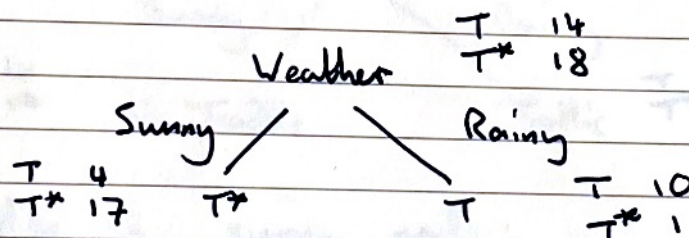 T 14
T* 18
Weather
Sunny Rainy
T 4 T 10
T* 17 T* T T* 1